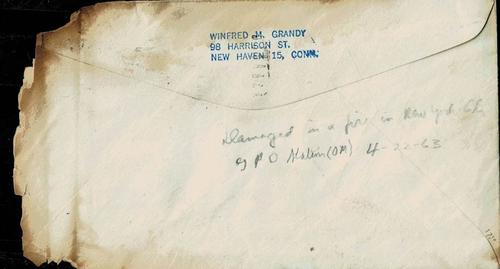 WINFRED H. GRANDY
98 HARRISON ST.
NEW HAVEN 15, CONN.
Damaged in a fire in New York City
P O Station 4-22-63